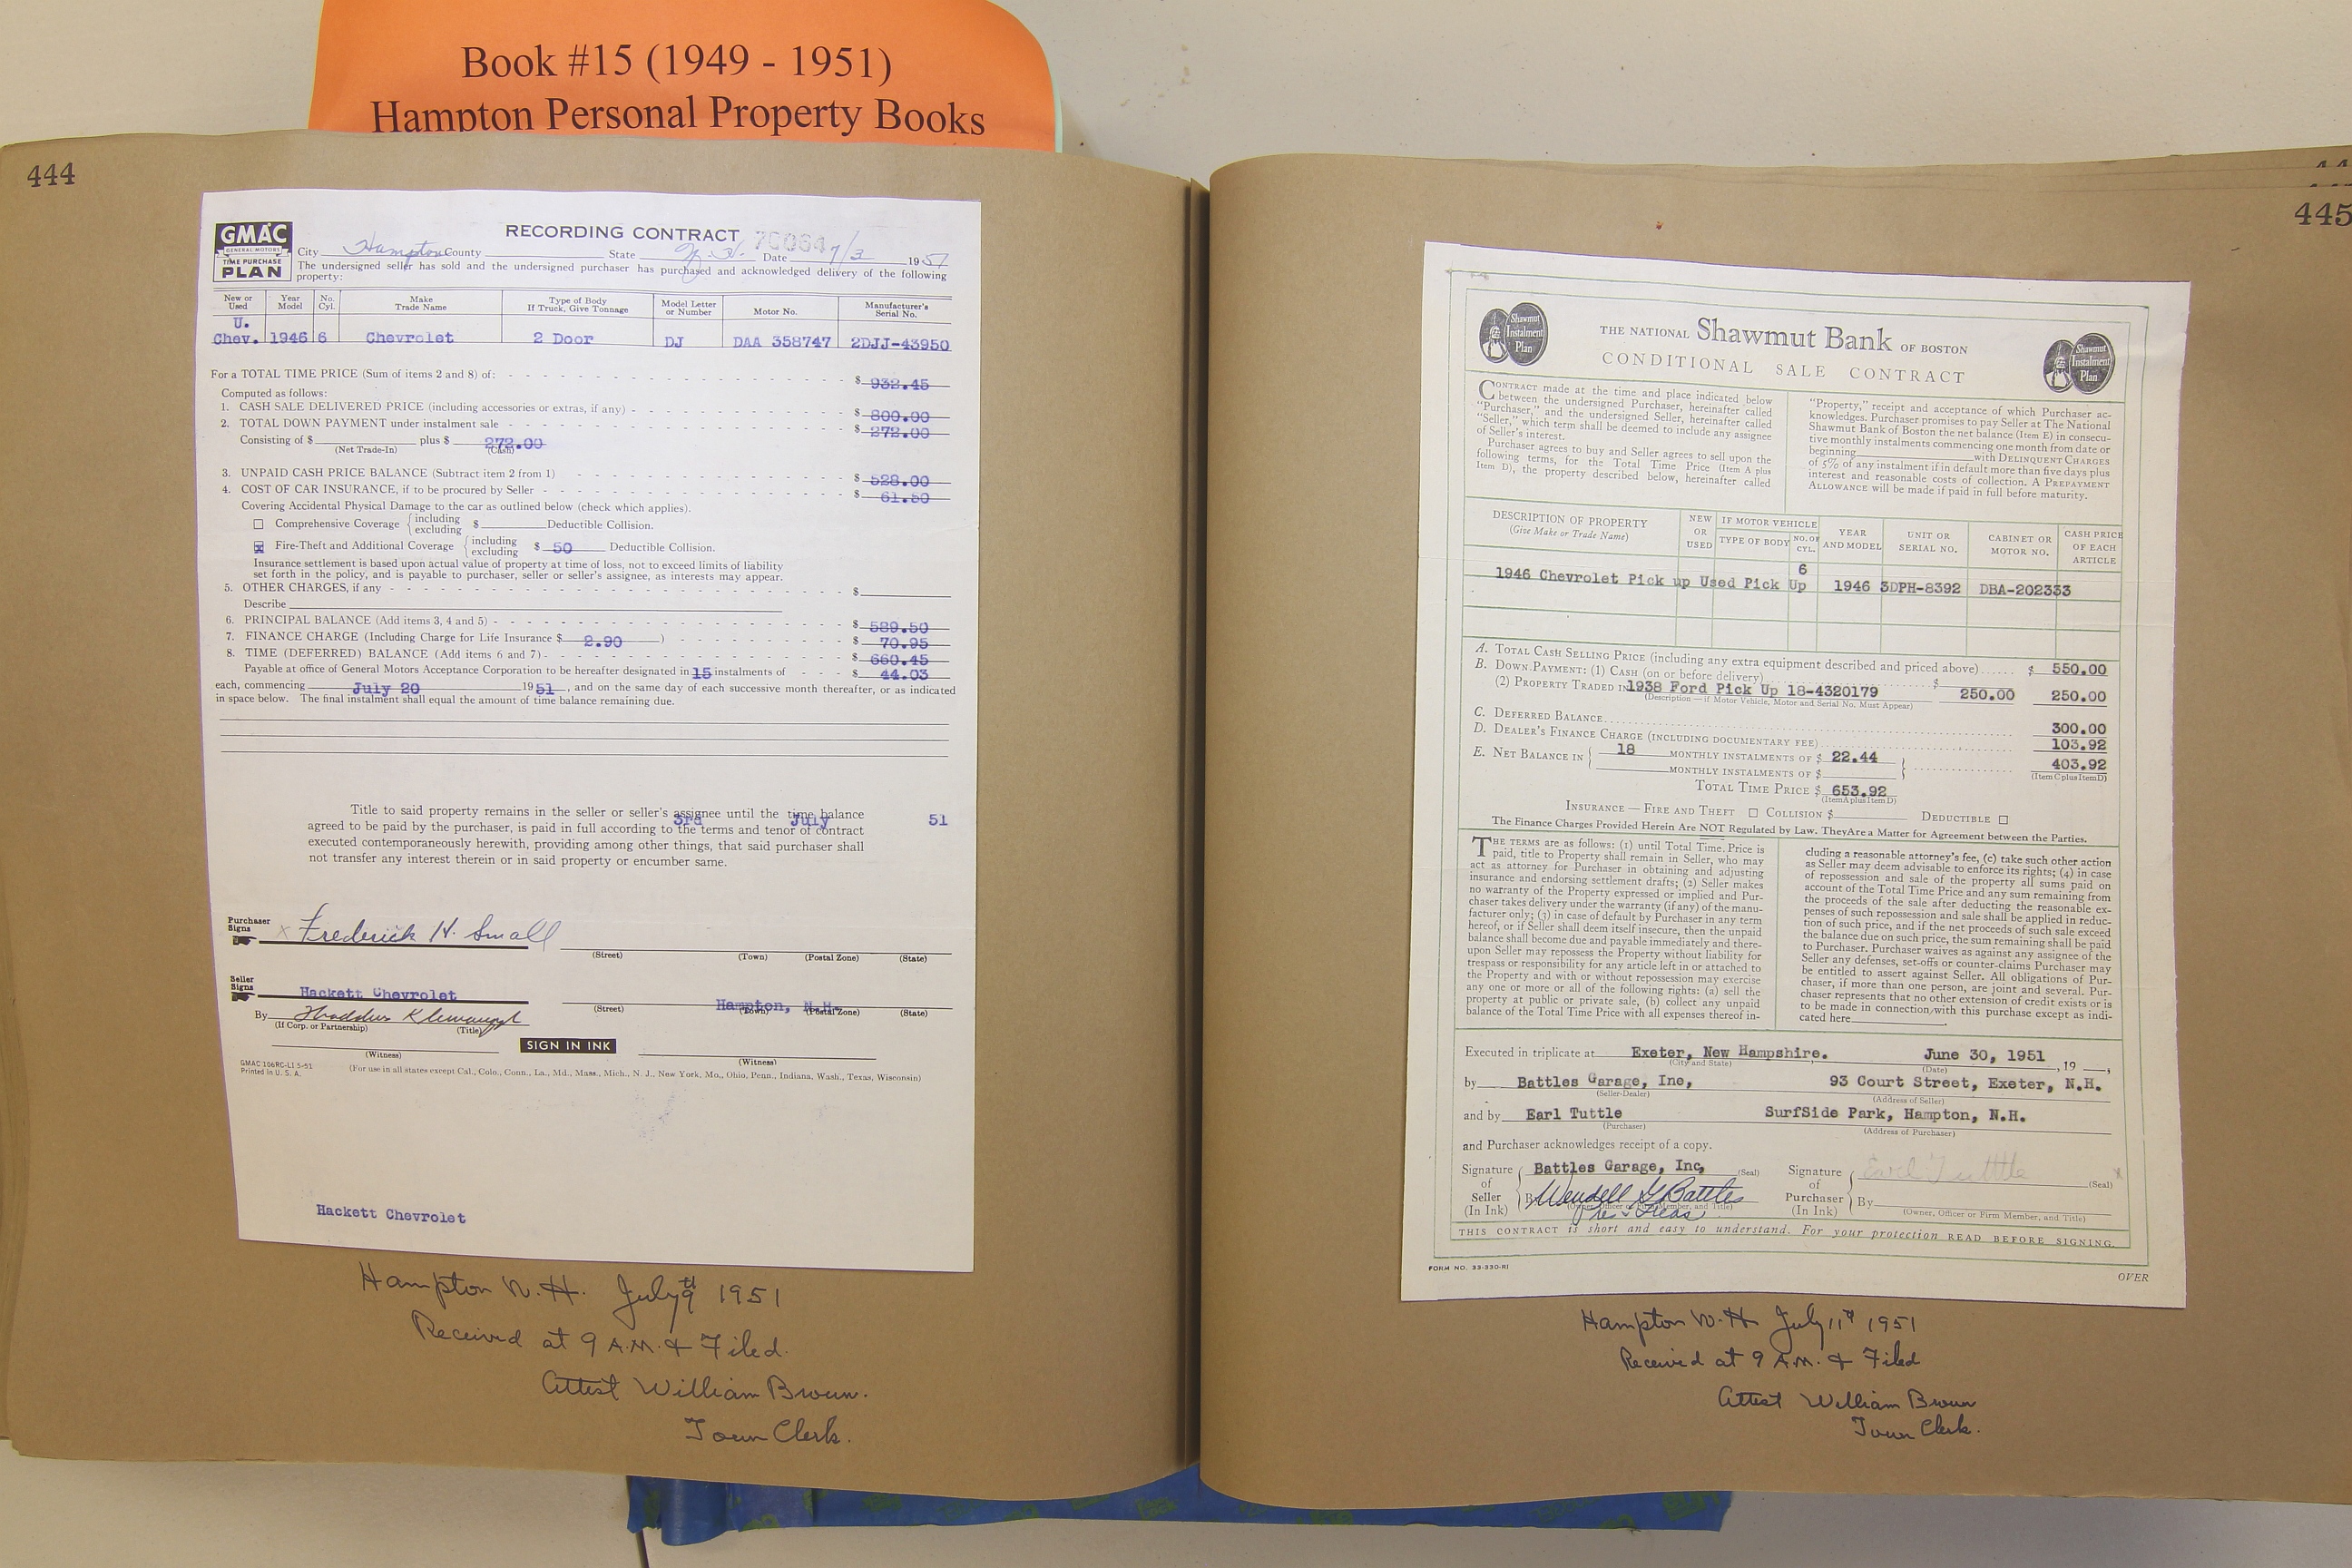 Book #15 (1949 - 1951)
Hampton Personal Property Books
444
GMAC
GENERAL MOTORS
TIME PURCHASE
PLAN
RECORDING CONTRACT 70064
City Hampton County State N. H. Date 7/3 1951
The undersigned seller has sold and the undersigned purchaser has purchased and acknowledged delivery of the following
property:
New or Used Year Model No. Cyl. Make Trade Name Type of Body If Truck, Give Tonnage Model Letter or Number Motor No. Manufacturer's Serial No.
U.
Chev. 1946 6 Chevrolet 2 Door DJ DAA 358747 2DJJ-43950
For a TOTAL TIME PRICE (Sum of items 2 and 8) of: $ 932.45
Computed as follows:
1. CASH SALE DELIVERED PRICE (including accessories or extras, if any) - $ 800.00
2. TOTAL DOWN PAYMENT under instalment sale $ 272.00
Consisting of $ plus $ 272.00
(Net Trade-In) (Cash)
3. UNPAID CASH PRICE BALANCE (Subtract item 2 from 1) $ 528.00
4. COST OF CAR INSURANCE, if to be procured by Seller $ 61.50
Covering Accidental Physical Damage to the car as outlined below (check which applies).
Comprehensive Coverage { including excluding $ Deductible Collision.
x Fire-Theft and Additional Coverage { including excluding $ 50 Deductible Collision.
Insurance settlement is based upon actual value of property at time of loss, not to exceed limits of liability
set forth in the policy, and is payable to purchaser, seller or seller's assignee, as interests may appear.
5. OTHER CHARGES, if any $
Describe
6. PRINCIPAL BALANCE (Add items 3, 4 and 5) $ 589.50
7. FINANCE CHARGE (Including Charge for Life Insurance $ 2.90 ) $ 70.95
8. TIME (DEFERRED) BALANCE (Add items 6 and 7) $ 660.45
Payable at office of General Motors Acceptance Corporation to be hereafter designated in 15 instalments of $ 44.03
each, commencing July 20 1951, and on the same day of each successive month thereafter, or as indicated
in space below. The final instalment shall equal the amount of time balance remaining due.
Title to said property remains in the seller or seller's assignee until the time balance
3rd July 51
agreed to be paid by the purchaser, is paid in full according to the terms and tenor of contract
executed contemporaneously herewith, providing among other things, that said purchaser shall
not transfer any interest therein or in said property or encumber same.
Purchaser Signs x Frederick H. Small
(Street) (Town) (Postal Zone) (State)
Seller Signs Hackett Chevrolet Hampton, N.H.
(Street) (Town) (Postal Zone) (State)
By
(If Corp. or Partnership) (Title)
SIGN IN INK
(Witness) (Witness)
GMAC 106RC-L1 5-51
Printed in U. S. A.
(For use in all states except Cal., Colo., Conn., La., Md., Mass., Mich., N. J., New York, Mo., Ohio, Penn., Indiana, Wash., Texas, Wisconsin)
Hackett Chevrolet
Hampton N. H. July 9th 1951
Received at 9 A.M. & Filed.
Attest William Brown.
Town Clerk.
445
Shawmut Instalment Plan
THE NATIONAL Shawmut Bank OF BOSTON
CONDITIONAL SALE CONTRACT
Shawmut Instalment Plan
CONTRACT made at the time and place indicated below
between the undersigned Purchaser, hereinafter called
"Purchaser," and the undersigned Seller, hereinafter called
"Seller," which term shall be deemed to include any assignee
of Seller's interest.
Purchaser agrees to buy and Seller agrees to sell upon the
following terms, for the Total Time Price (Item A plus
Item D), the property described below, hereinafter called
"Property," receipt and acceptance of which Purchaser ac-
knowledges. Purchaser promises to pay Seller at The National
Shawmut Bank of Boston the net balance (Item E) in consecu-
tive monthly instalments commencing one month from date or
beginning with DELINQUENT CHARGES
of 5% of any instalment if in default more than five days plus
interest and reasonable costs of collection. A PREPAYMENT
ALLOWANCE will be made if paid in full before maturity.
DESCRIPTION OF PROPERTY (Give Make or Trade Name) NEW OR USED IF MOTOR VEHICLE TYPE OF BODY NO. OF CYL. YEAR AND MODEL UNIT OR SERIAL NO. CABINET OR MOTOR NO. CASH PRICE OF EACH ARTICLE
6
1946 Chevrolet Pick up Used Pick Up 1946 3DPH-8392 DBA-202333
A. TOTAL CASH SELLING PRICE (including any extra equipment described and priced above) $ 550.00
B. DOWN PAYMENT: (1) CASH (on or before delivery) $
(2) PROPERTY TRADED IN 1938 Ford Pick Up 18-4320179 250.00 250.00
(Description — if Motor Vehicle, Motor and Serial No. Must Appear)
C. DEFERRED BALANCE 300.00
D. DEALER'S FINANCE CHARGE (INCLUDING DOCUMENTARY FEE) 103.92
E. NET BALANCE IN { 18 MONTHLY INSTALMENTS OF $ 22.44 } 403.92
MONTHLY INSTALMENTS OF $ (Item C plus Item D)
TOTAL TIME PRICE $ 653.92
(Item A plus Item D)
INSURANCE — FIRE AND THEFT COLLISION $ DEDUCTIBLE
The Finance Charges Provided Herein Are NOT Regulated by Law. They Are a Matter for Agreement between the Parties.
THE TERMS are as follows: (1) until Total Time Price is
paid, title to Property shall remain in Seller, who may
act as attorney for Purchaser in obtaining and adjusting
insurance and endorsing settlement drafts; (2) Seller makes
no warranty of the Property expressed or implied and Pur-
chaser takes delivery under the warranty (if any) of the manu-
facturer only; (3) in case of default by Purchaser in any term
hereof, or if Seller shall deem itself insecure, then the unpaid
balance shall become due and payable immediately and there-
upon Seller may repossess the Property without liability for
trespass or responsibility for any article left in or attached to
the Property and with or without repossession may exercise
any one or more or all of the following rights: (a) sell the
property at public or private sale, (b) collect any unpaid
balance of the Total Time Price with all expenses thereof in-
cluding a reasonable attorney's fee, (c) take such other action
as Seller may deem advisable to enforce its rights; (4) in case
of repossession and sale of the property all sums paid on
account of the Total Time Price and any sum remaining from
the proceeds of the sale after deducting the reasonable ex-
penses of such repossession and sale shall be applied in reduc-
tion of such price, and if the net proceeds of such sale exceed
the balance due on such price, the sum remaining shall be paid
to Purchaser. Purchaser waives as against any assignee of the
Seller any defenses, set-offs or counter-claims Purchaser may
be entitled to assert against Seller. All obligations of Pur-
chaser, if more than one person, are joint and several. Pur-
chaser represents that no other extension of credit exists or is
to be made in connection with this purchase except as indi-
cated here
Executed in triplicate at Exeter, New Hampshire. June 30, 1951, 19
(City and State) (Date)
by Battles Garage, Inc, 93 Court Street, Exeter, N.H.
(Seller-Dealer) (Address of Seller)
and by Earl Tuttle SurfSide Park, Hampton, N.H.
(Purchaser) (Address of Purchaser)
and Purchaser acknowledges receipt of a copy.
Signature of Seller (In Ink) Battles Garage, Inc, (Seal)
By Wendell G Battles
(Owner, Officer or Firm Member, and Title)
Pre & Treas
Signature of Purchaser (In Ink) Earl Tuttle (Seal)
By
(Owner, Officer or Firm Member, and Title)
THIS CONTRACT is short and easy to understand. For your protection READ BEFORE SIGNING.
FORM NO. 33-330-R1
OVER
Hampton N. H. July 11th 1951
Received at 9 A.M. & Filed
Attest William Brown
Town Clerk.